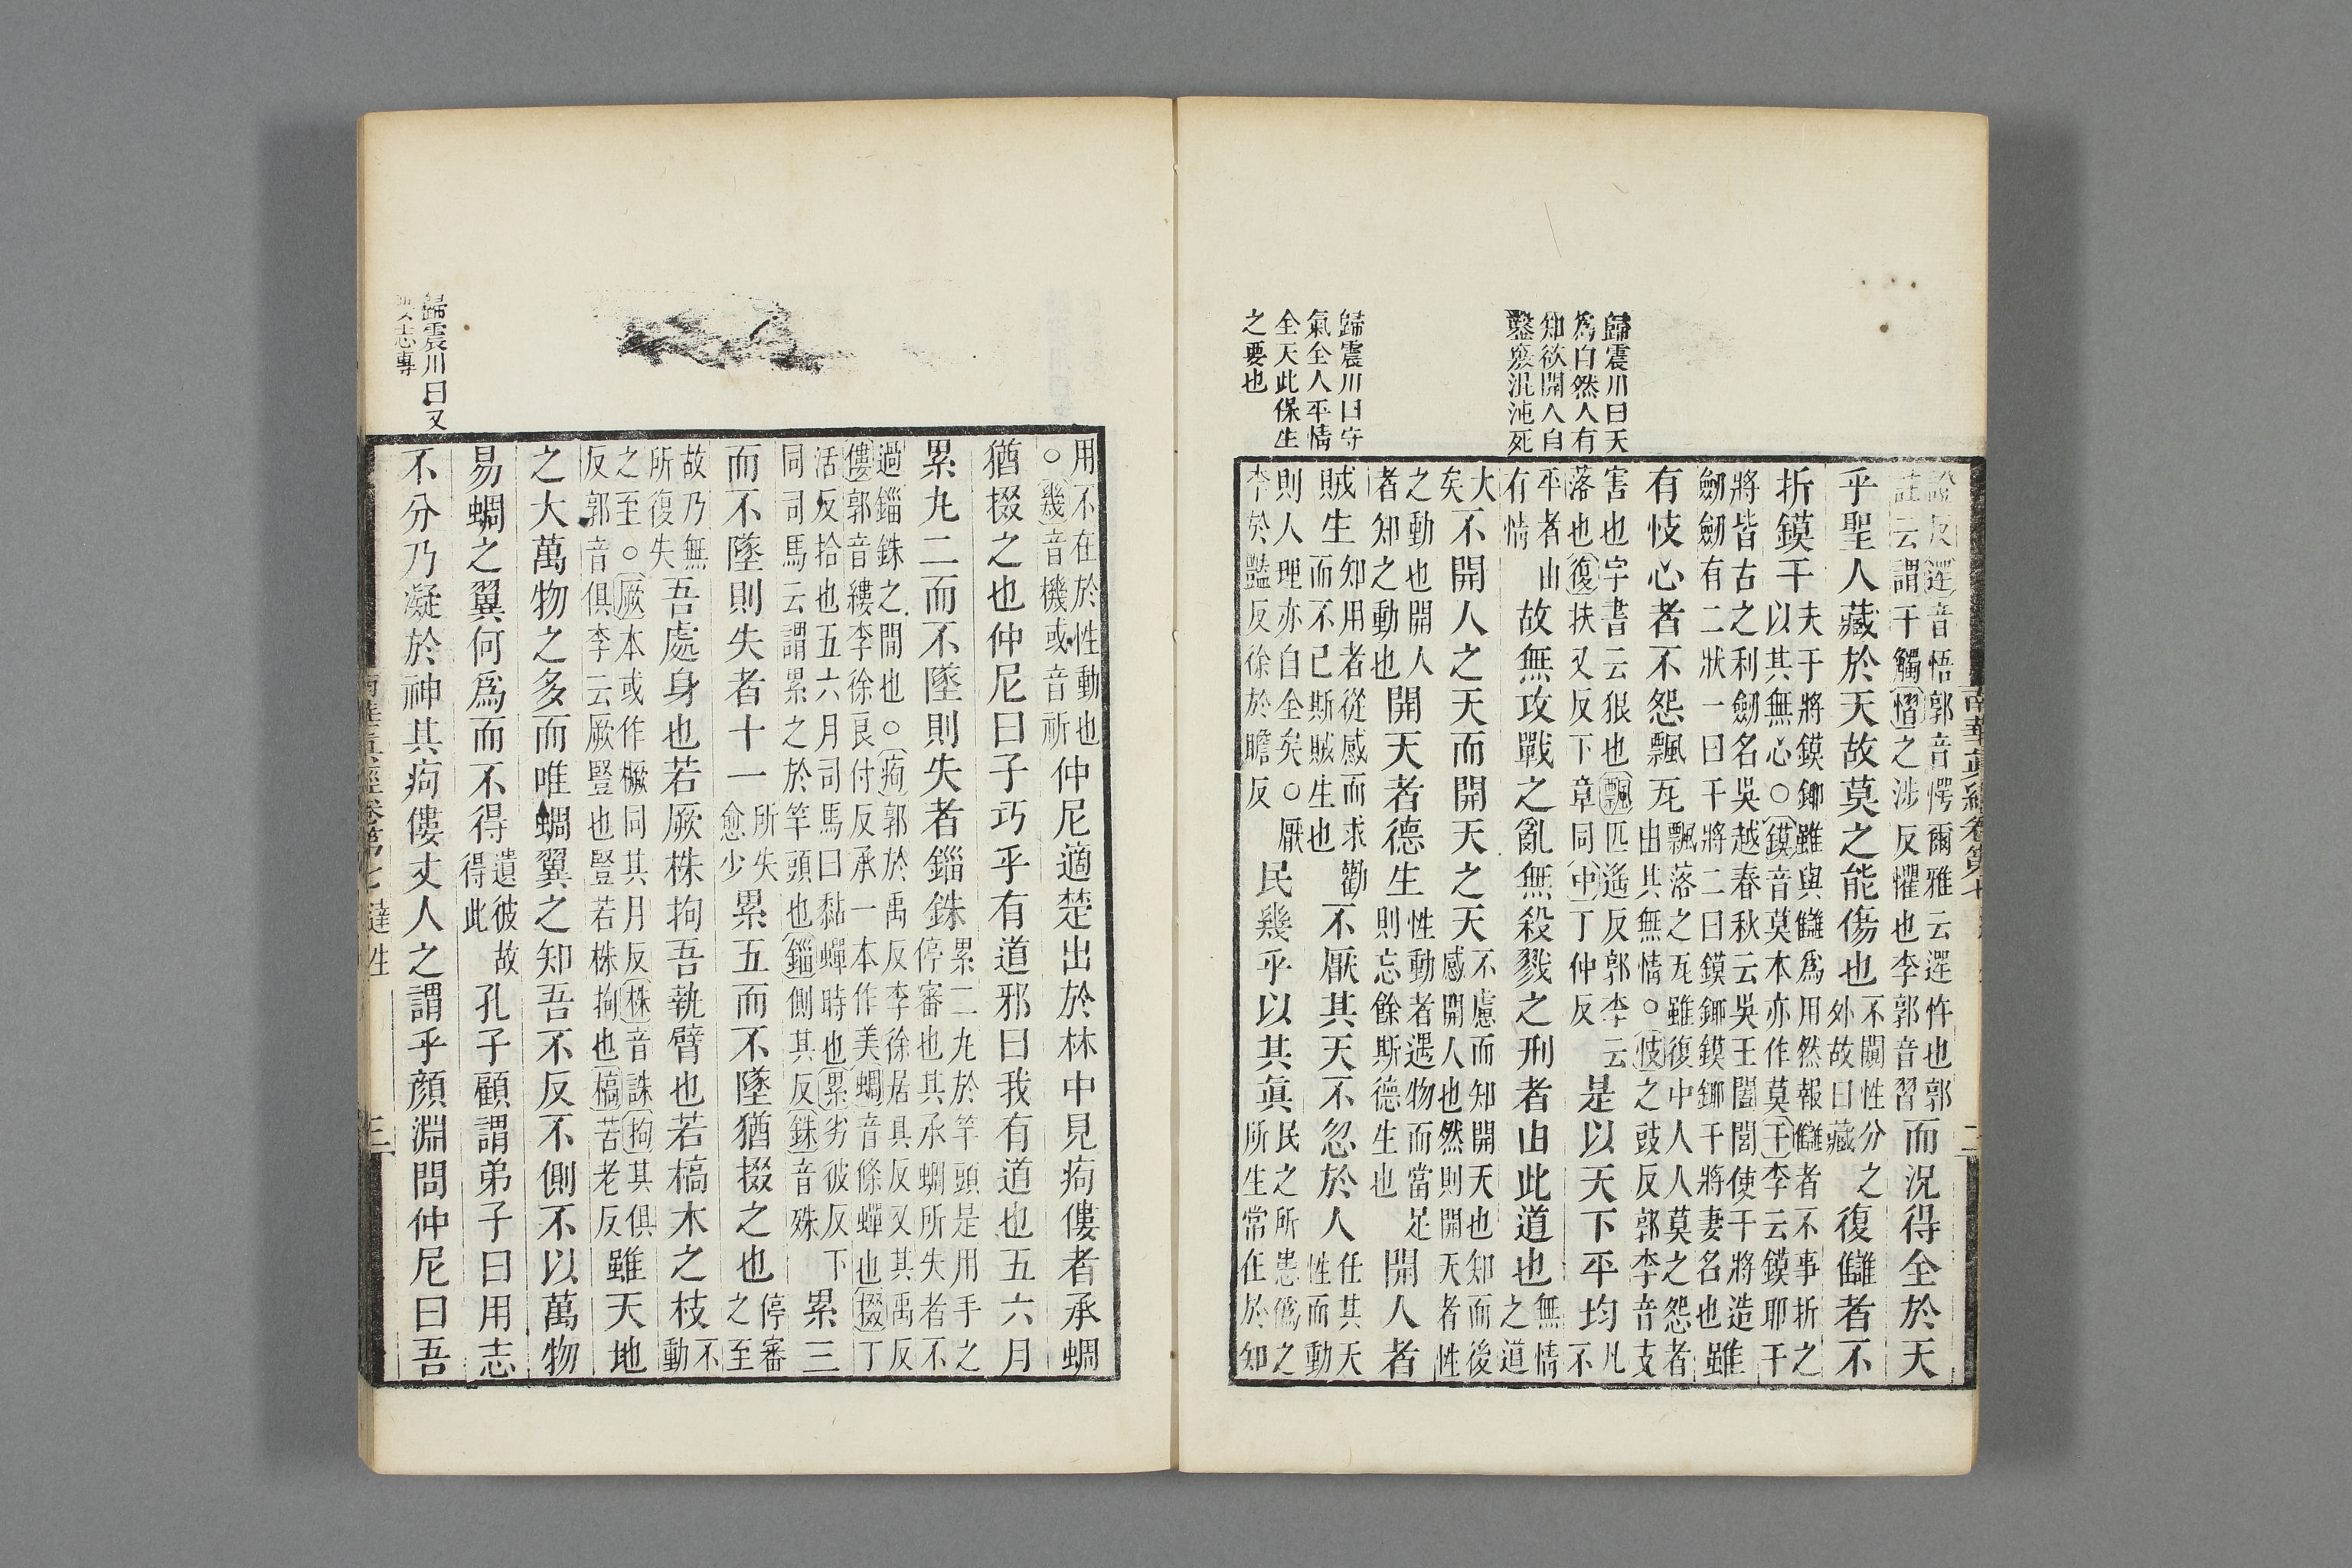 歸震川曰天
爲自然人有
知欲開人自
鑿竅混沌死
歸震川曰守
氣全人平情
全天此保生
之要也
證反遻音悟郭音愕爾雅云遻忤也郭註云謂干觸慴之涉反懼也李郭音習而況得全於天
乎聖人藏於天故莫之能傷也不闚性分之外故曰藏復讎者不
折鏌干夫干將鏌鋣雖與讎爲用然報讎者不事折之以其無心○鏌音莫本亦作莫干李云鏌耶干
將皆古之利劒名吳越春秋云吳王闔閭使干將造劒劒有二狀一曰干將二曰鏌鋣鏌鋣干將妻名也雖
有忮心者不怨飄瓦飄落之瓦雖復中人人莫之怨者由其無情○忮之豉反郭李音支
害也字書云狠也飄匹遙反郭李云落也復扶又反下章同中丁仲反是以天下平均凡不
平者由有情故無攻戰之亂無殺戮之刑者由此道也無情之道
大矣不開人之天而開天之天不慮而知開天也知而後感開人也然則開天者性
之動也開人者知之動也開天者德生性動者遇物而當足則忘餘斯德生也開人者
賊生知用者從感而求勸而不已斯賊生也不厭其天不忽於人任其天性而動
則人理亦自全矣○厭李於豔反徐於瞻反民幾乎以其眞民之所患僞之所生常在於知
南華眞經卷第七
二
用不在於性動也○幾音機或音祈仲尼適楚出於林中見痀僂者承蜩
猶掇之也仲尼曰子巧乎有道邪曰我有道也五六月
累九二而不墜則失者錙銖累二九於竿頭是用手之停審也其承蜩所失者不
過錙銖之間也○痀郭於禹反李徐居具反又其禹反僂郭音縷李徐良付反承一本作美蜩音條蟬也掇丁
活反拾也五六月司馬曰黏蟬時也累劣彼反下同司馬云謂累之於竿頭也錙側其反銖音殊累三
而不墜則失者十一所失愈少累五而不墜猶掇之也停審之至
故乃無所復失吾處身也若厥株拘吾執臂也若槁木之枝不動
之至○厥本或作橛同其月反株音誅拘其俱反郭音俱李云厥豎也豎若株拘也槁苦老反雖天地
之大萬物之多而唯蜩翼之知吾不反不側不以萬物
易蜩之翼何爲而不得遺彼故得此孔子顧謂弟子曰用志
不分乃凝於神其痀僂丈人之謂乎顏淵問仲尼曰吾
歸震川曰又
志專
南華眞經卷第七 達性
三